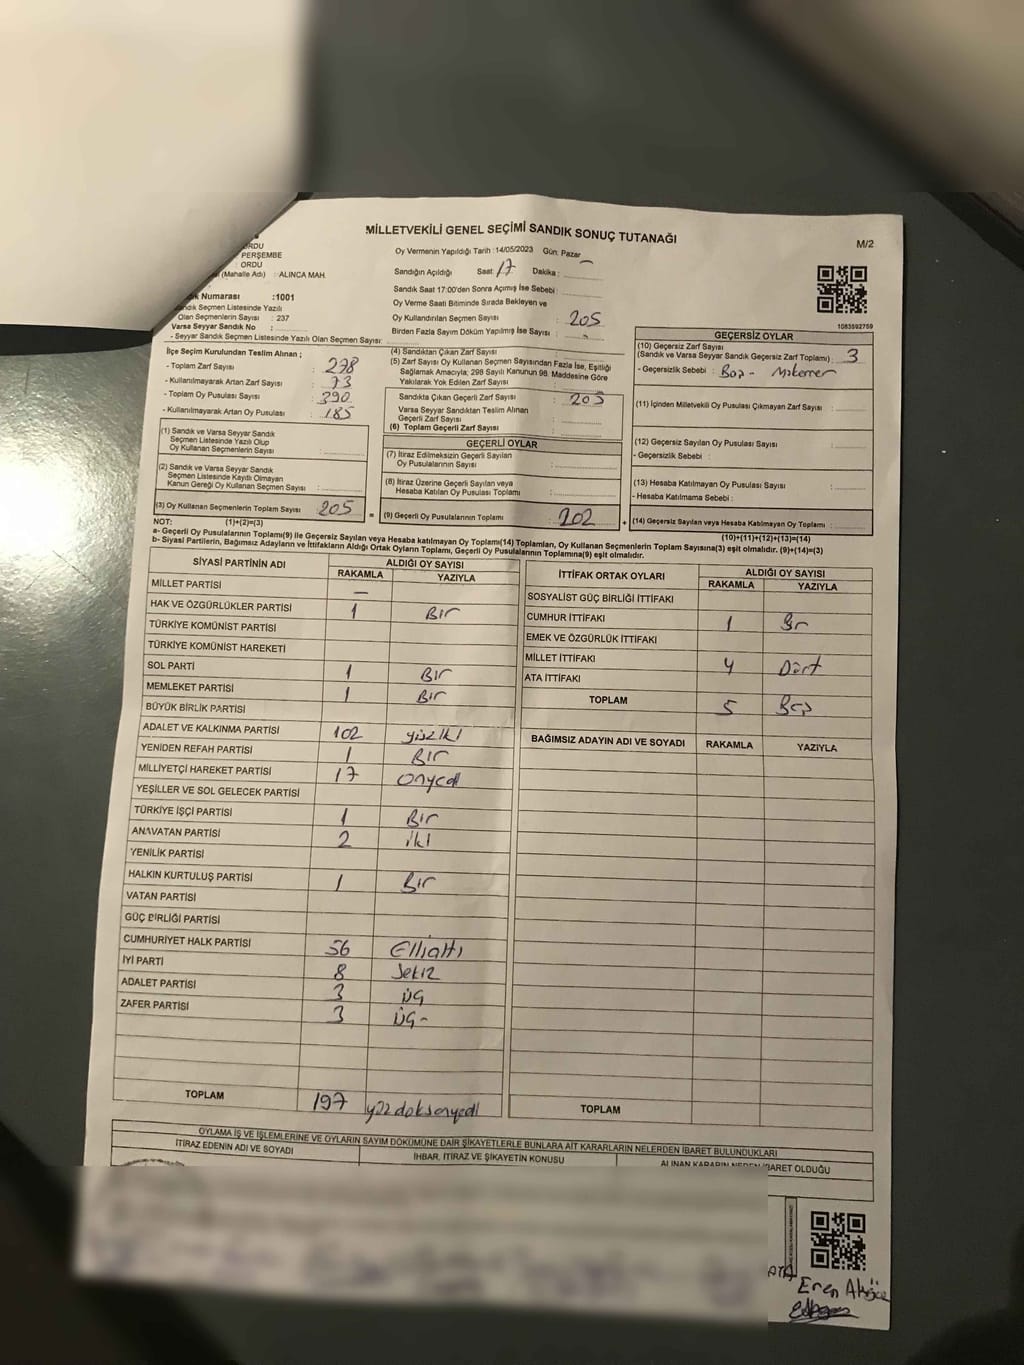 MİLLETVEKİLİ GENEL SEÇİMİ SANDIK SONUÇ TUTANAĞI
M/2
ORDU
PERŞEMBE
: ORDU
(Mahalle Adı) : ALINCA MAH.
Numarası :1001
Seçmen Listesinde Yazılı
Olan Seçmenlerin Sayısı : 237
Varsa Seyyar Sandık No :
- Seyyar Sandık Seçmen Listesinde Yazılı Olan Seçmen Sayısı:
Oy Vermenin Yapıldığı Tarih :14/05/2023 Gün: Pazar
Sandığın Açıldığı Saat: 17 Dakika:
Sandık Saat 17:00'den Sonra Açımış İse Sebebi:
Oy Verme Saati Bitiminde Sırada Bekleyen ve
Oy Kullandırılan Seçmen Sayısı : 205
Birden Fazla Sayım Döküm Yapılmış İse Sayısı :
1083592759
İlçe Seçim Kurulundan Teslim Alınan ;
- Toplam Zarf Sayısı : 278
- Kullanılmayarak Artan Zarf Sayısı : 73
- Toplam Oy Pusulası Sayısı : 390
- Kullanılmayarak Artan Oy Pusulası : 185
(1) Sandık ve Varsa Seyyar Sandık
Seçmen Listesinde Yazılı Olup
Oy Kullanan Seçmenlerin Sayısı :
(2) Sandık ve Varsa Seyyar Sandık
Seçmen Listesinde Kayıtlı Olmayan
Kanun Gereği Oy Kullanan Seçmen Sayısı :
(3) Oy Kullanan Seçmenlerin Toplam Sayısı 205 =
(4) Sandıktan Çıkan Zarf Sayısı :
(5) Zarf Sayısı Oy Kullanan Seçmen Sayısından Fazla İse, Eşitliği
Sağlamak Amacıyla; 298 Sayılı Kanunun 98. Maddesine Göre
Yakılarak Yok Edilen Zarf Sayısı :
Sandıkta Çıkan Geçerli Zarf Sayısı : 205
Varsa Seyyar Sandıktan Teslim Alınan
Geçerli Zarf Sayısı :
(6) Toplam Geçerli Zarf Sayısı :
GEÇERLİ OYLAR
(7) İtiraz Edilmeksizin Geçerli Sayılan
Oy Pusulalarının Sayısı :
(8) İtiraz Üzerine Geçerli Sayılan veya
Hesaba Katılan Oy Pusulası Toplamı :
(9) Geçerli Oy Pusulalarının Toplamı : 202 +
GEÇERSİZ OYLAR
(10) Geçersiz Zarf Sayısı
(Sandık ve Varsa Seyyar Sandık Geçersiz Zarf Toplamı) : 3
- Geçersizlik Sebebi : Boş -
(11) İçinden Milletvekili Oy Pusulası Çıkmayan Zarf Sayısı :
(12) Geçersiz Sayılan Oy Pusulası Sayısı :
- Geçersizlik Sebebi :
(13) Hesaba Katılmayan Oy Pusulası Sayısı :
- Hesaba Katılmama Sebebi :
(14) Geçersiz Sayılan veya Hesaba Katılmayan Oy Toplamı :
NOT: (1)+(2)=(3) (10)+(11)+(12)+(13)=(14)
a- Geçerli Oy Pusulalarının Toplamı(9) ile Geçersiz Sayılan veya Hesaba katılmayan Oy Toplamı(14) Toplamları, Oy Kullanan Seçmenlerin Toplam Sayısına(3) eşit olmalıdır. (9)+(14)=(3)
b- Siyasi Partilerin, Bağımsız Adayların ve İttifakların Aldığı Ortak Oyların Toplamı, Geçerli Oy Pusulalarının Toplamına(9) eşit olmalıdır.
SİYASİ PARTİNİN ADI ALDIĞI OY SAYISI
RAKAMLA YAZIYLA
MİLLET PARTİSİ —
HAK VE ÖZGÜRLÜKLER PARTİSİ 1 Bir
TÜRKİYE KOMÜNİST PARTİSİ
TÜRKİYE KOMÜNİST HAREKETİ
SOL PARTİ 1 Bir
MEMLEKET PARTİSİ 1 Bir
BÜYÜK BİRLİK PARTİSİ
ADALET VE KALKINMA PARTİSİ 102 yüziki
YENİDEN REFAH PARTİSİ 1 Bir
MİLLİYETÇİ HAREKET PARTİSİ 17 onyedi
YEŞİLLER VE SOL GELECEK PARTİSİ
TÜRKİYE İŞÇİ PARTİSİ 1 Bir
ANAVATAN PARTİSİ 2 iki
YENİLİK PARTİSİ
HALKIN KURTULUŞ PARTİSİ 1 Bir
VATAN PARTİSİ
GÜÇ BİRLİĞİ PARTİSİ
CUMHURİYET HALK PARTİSİ 56 Elli altı
İYİ PARTİ 8 Sekiz
ADALET PARTİSİ 3 üç
ZAFER PARTİSİ 3 üç -
TOPLAM 197 yüzdoksanyedi
İTTİFAK ORTAK OYLARI ALDIĞI OY SAYISI
RAKAMLA YAZIYLA
SOSYALİST GÜÇ BİRLİĞİ İTTİFAKI
CUMHUR İTTİFAKI 1 Bir
EMEK VE ÖZGÜRLÜK İTTİFAKI
MİLLET İTTİFAKI 4 Dört
ATA İTTİFAKI
TOPLAM 5 Beş
BAĞIMSIZ ADAYIN ADI VE SOYADI RAKAMLA YAZIYLA
TOPLAM
OYLAMA İŞ VE İŞLEMLERİNE VE OYLARIN SAYIM DÖKÜMÜNE DAİR ŞİKAYETLERLE BUNLARA AİT KARARLARIN NELERDEN İBARET BULUNDUKLARI
İTİRAZ EDENİN ADI VE SOYADI İHBAR, İTİRAZ VE ŞİKAYETİN KONUSU ALINAN KARARIN NEDEN İBARET OLDUĞU
Eren